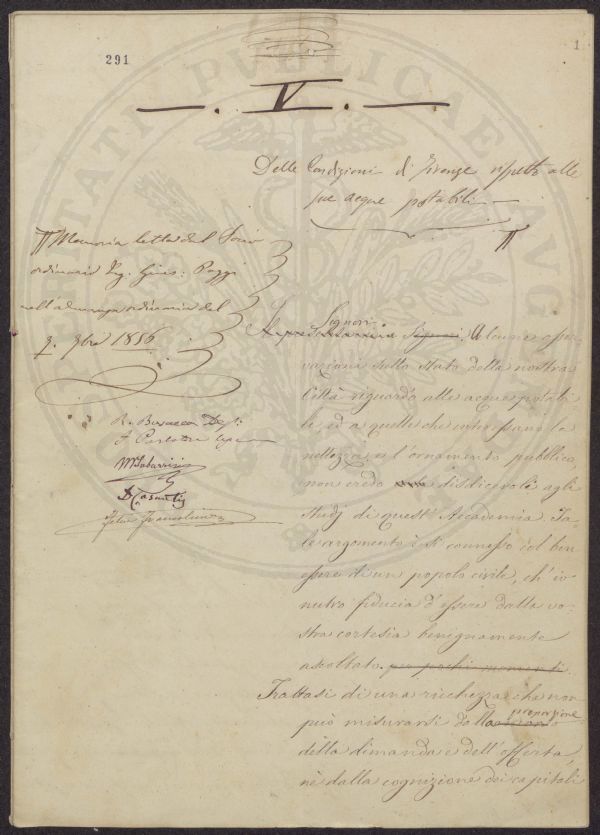 291
1
— . V . —
Delle Condizioni di Firenze rispetto alle
sue acque potabili —
Memoria letta dal Socio
ordinario Ing. Gius: Poggi
nell'adunanza ordinaria del
7bre 1856
R. Busacca
M Tabarrini
Felice Francolini
Signori.
Signori. Alcune osser-
vazioni sullo stato della nostra
Città riguardo alle acque potabi
li, ed a quelle che interessano la
nettezza e l'ornamento pubblico,
non credo disdicevole agli
studj di quest'Accademia. Ta-
le argomento è sì connesso col ben
essere di un popolo civile, ch'io
nutro fiducia d'essere dalla vo-
stra cortesia benignamente
ascoltato. per pochi momenti.
Trattasi di una ricchezza che non
può misurarsi dalla proporzione
della dimanda e dell'offerta,
nè dalla cognizione dei capitali
PROSPERITATI PUBLICAE AUGENDAE